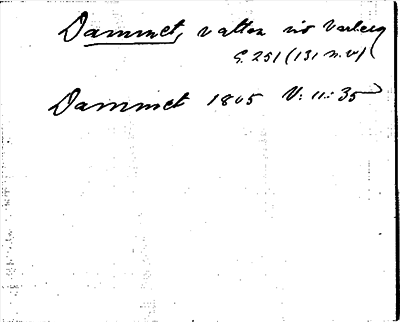 Dammet, vatten vid Varberg
G. 251 (131 n.v)
Dammet 1805 V: 11: 35